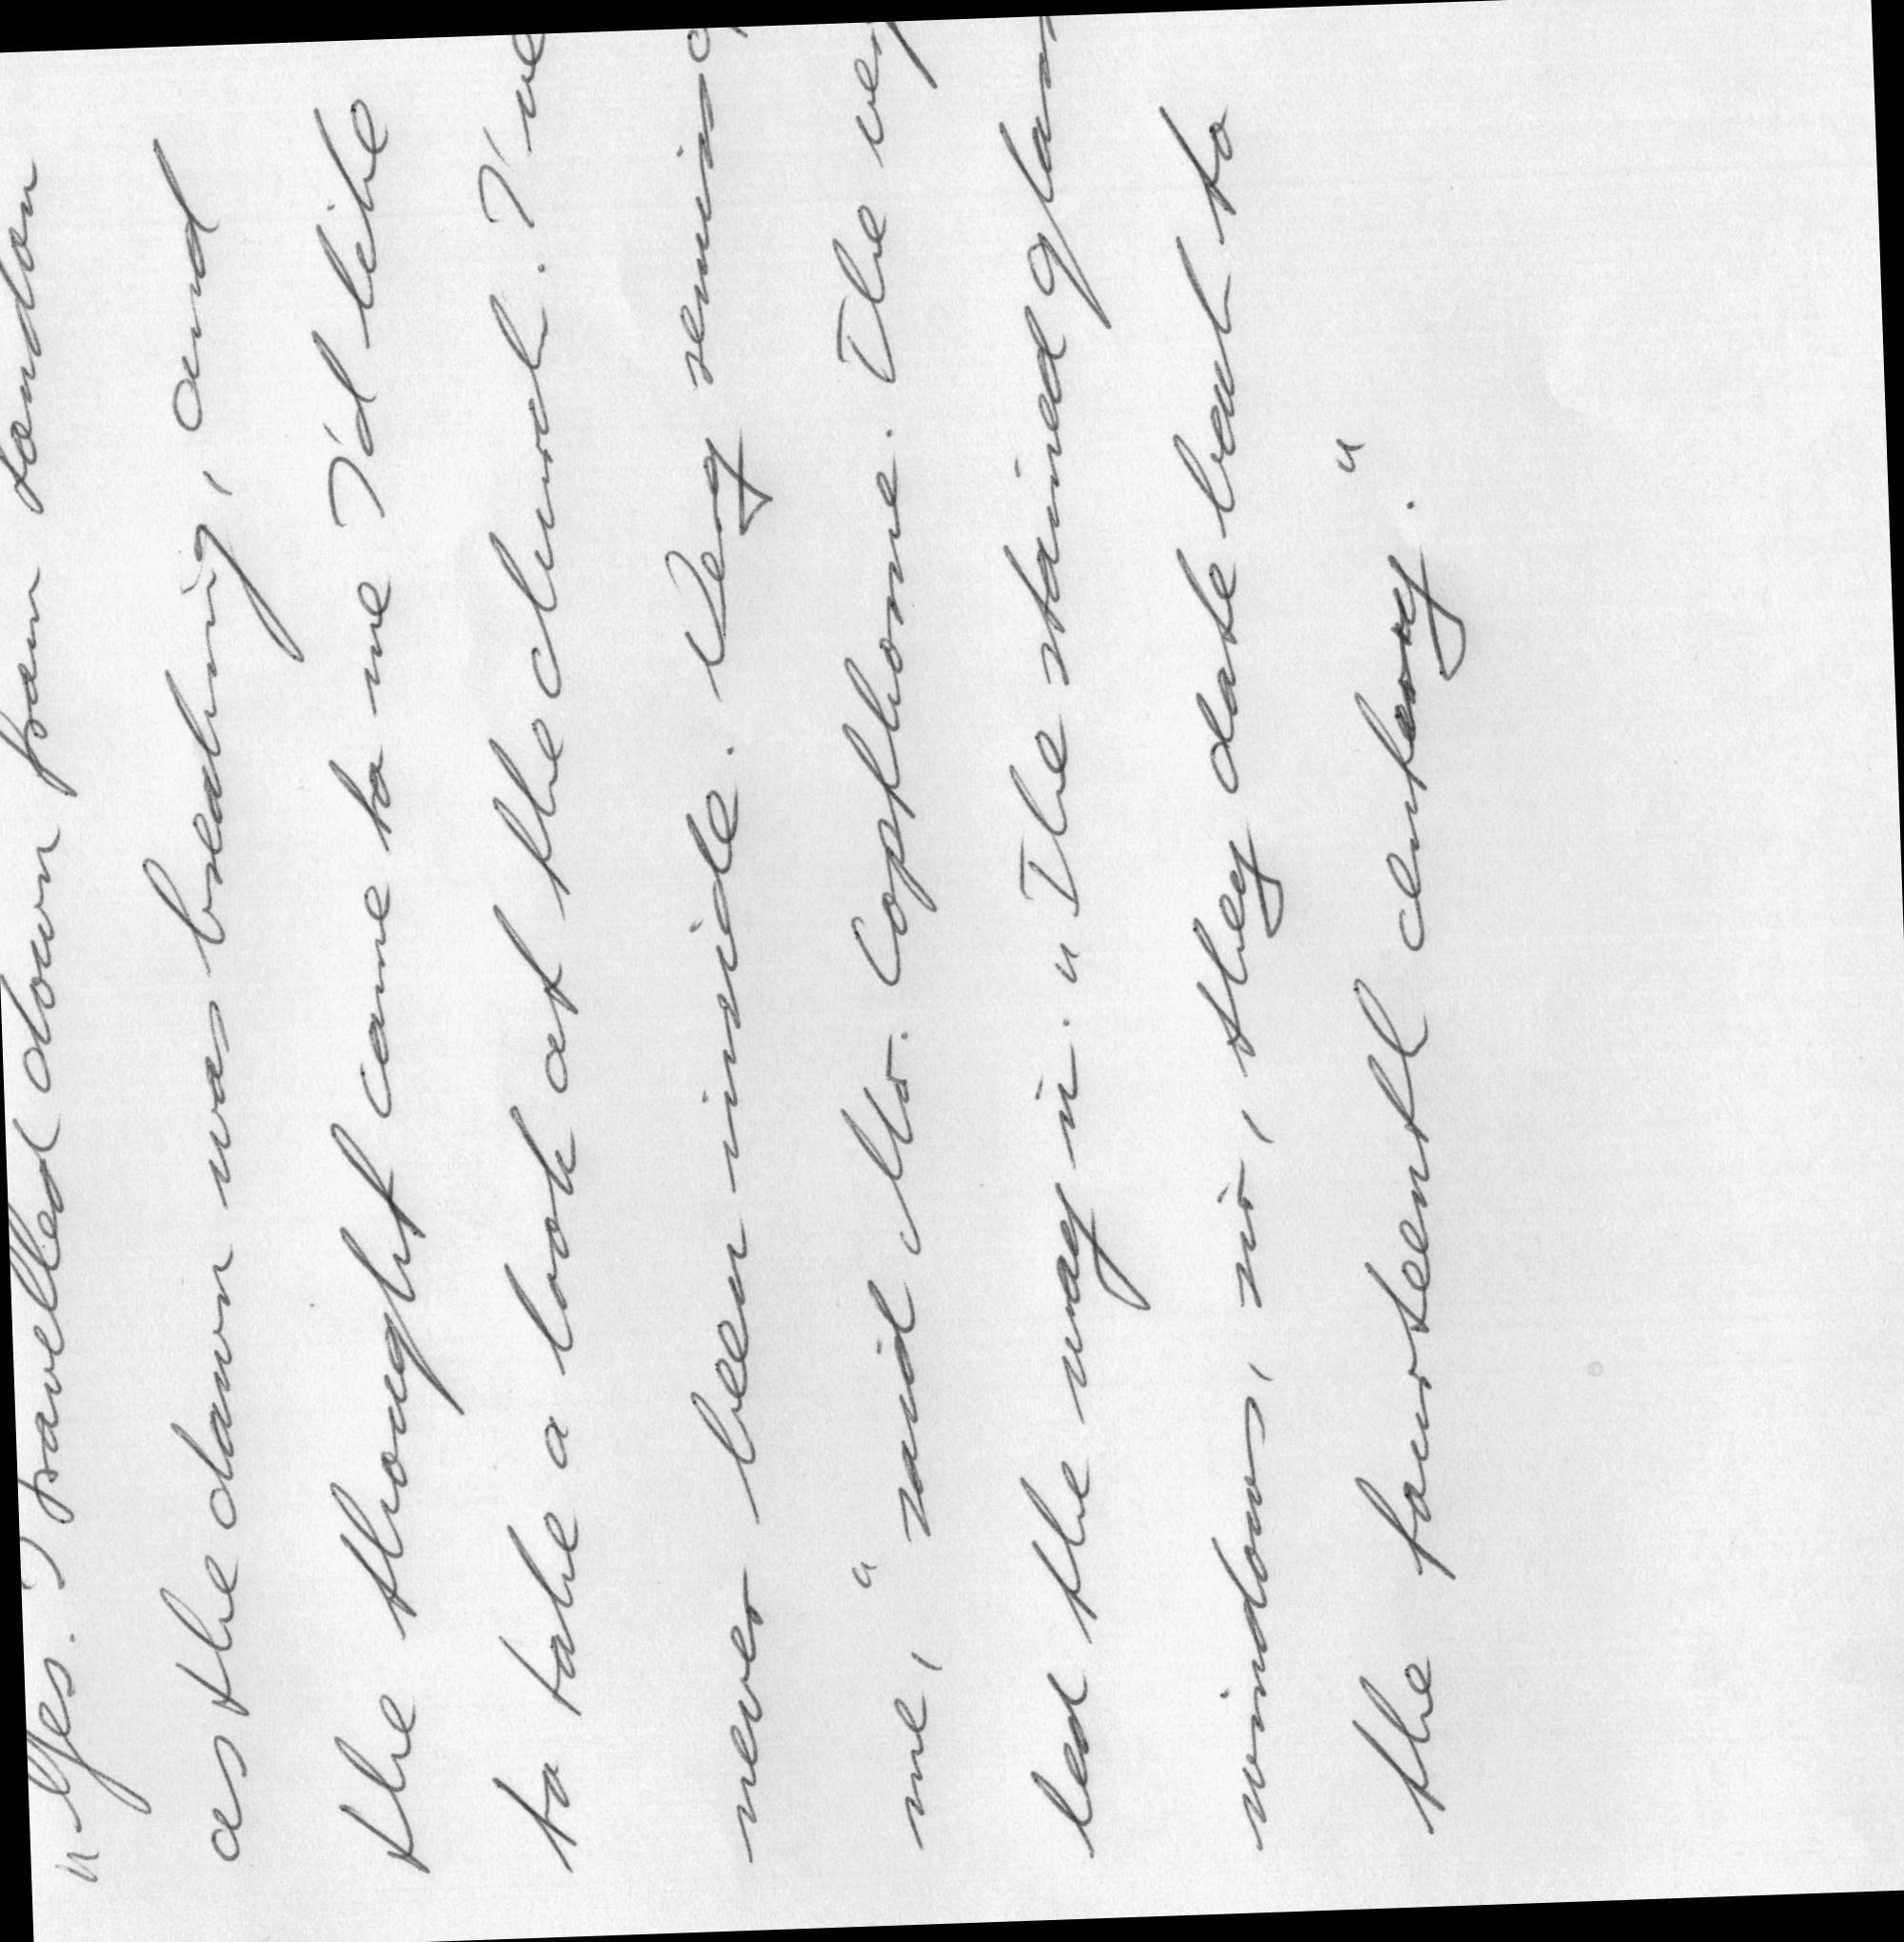 "Yes. I travelled down from London
as the dawn was breaking, and
the thought came to me I'd like
to take a look at the church. I've
never been inside. Very remiss o
me," said Mr. Copthorne. The verg
led the way in. "The stained glas
windows, sir, they date back to
the fourteenth century."